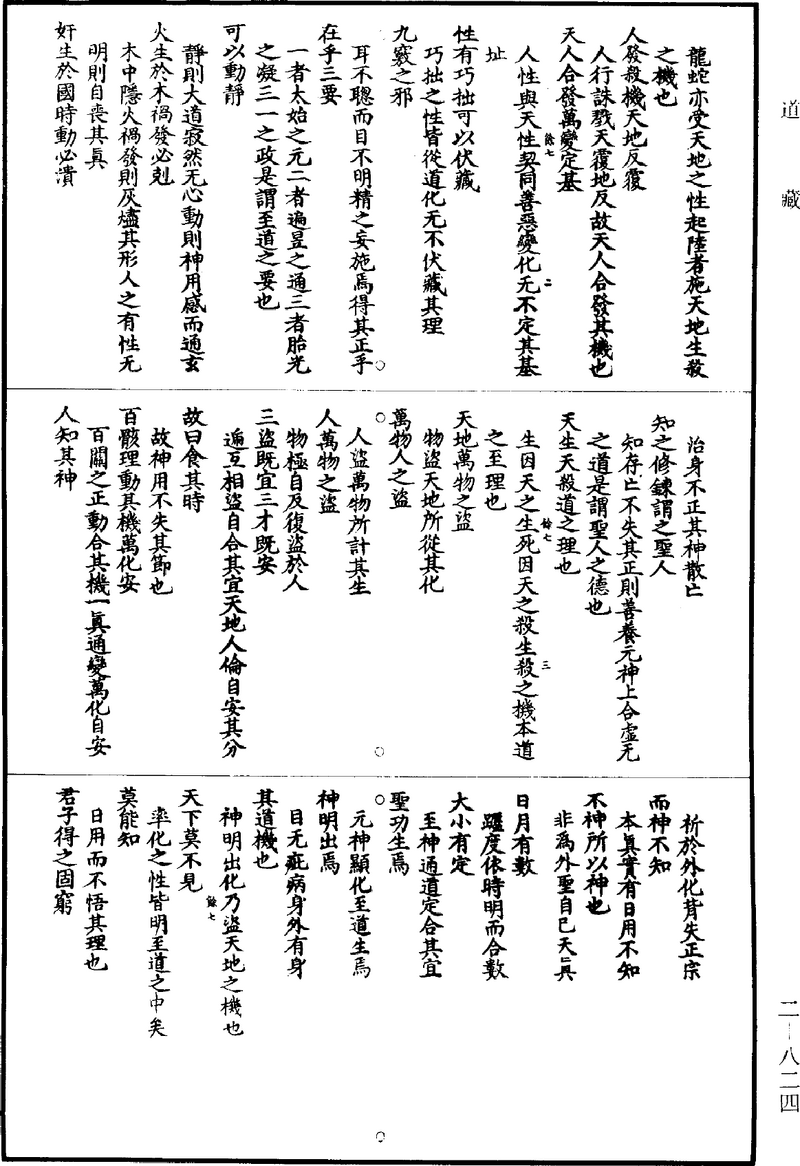 道藏
龍蛇亦受天地之性起陸者施天地生殺
之機也
人發殺機天地反覆
人行誅戮天覆地反故天人合發其機也
天人合發萬變定基
人性與天性契同善惡變化无不定其基
址
餘七
二
性有巧拙可以伏藏
巧拙之性皆從道化无不伏藏其理
九竅之邪
耳不聰而目不明精之妄施焉得其正乎
在乎三要
一者太始之元二者遍昱之通三者胎光
之凝三一之政是謂至道之要也
可以動靜
靜則大道寂然无心動則神用感而通玄
火生於木禍發必剋
木中隱火禍發則灰燼其形人之有性无
明則自喪其真
奸生於國時動必潰
治身不正其神散亡
知之修鍊謂之聖人
知存亡不失其正則善養元神上合虛无
之道是謂聖人之德也
天生天殺道之理也
生因天之生死因天之殺生殺之機本道
之至理也
餘七
三
天地萬物之盜
物盜天地所從其化
萬物人之盜
人盜萬物所計其生
人萬物之盜
物極自反復盜於人
三盜既宜三才既安
遞互相盜自合其宜天地人倫自安其分
故曰食其時
故神用不失其節也
百骸理動其機萬化安
百關之正動合其機一真通變萬化自安
人知其神
析於外化背失正宗
而神不知
本真實有日用不知
不神所以神也
非為外聖自己天真
日月有數
躔度依時明而合數
大小有定
至神通道定合其宜
聖功生焉
元神顯化至道生焉
神明出焉
目无疵病身外有身
其道機也
神明出化乃盜天地之機也
餘七
天下莫不見
率化之性皆明至道之中矣
莫能知
日用而不悟其理也
君子得之固窮
二－八二四